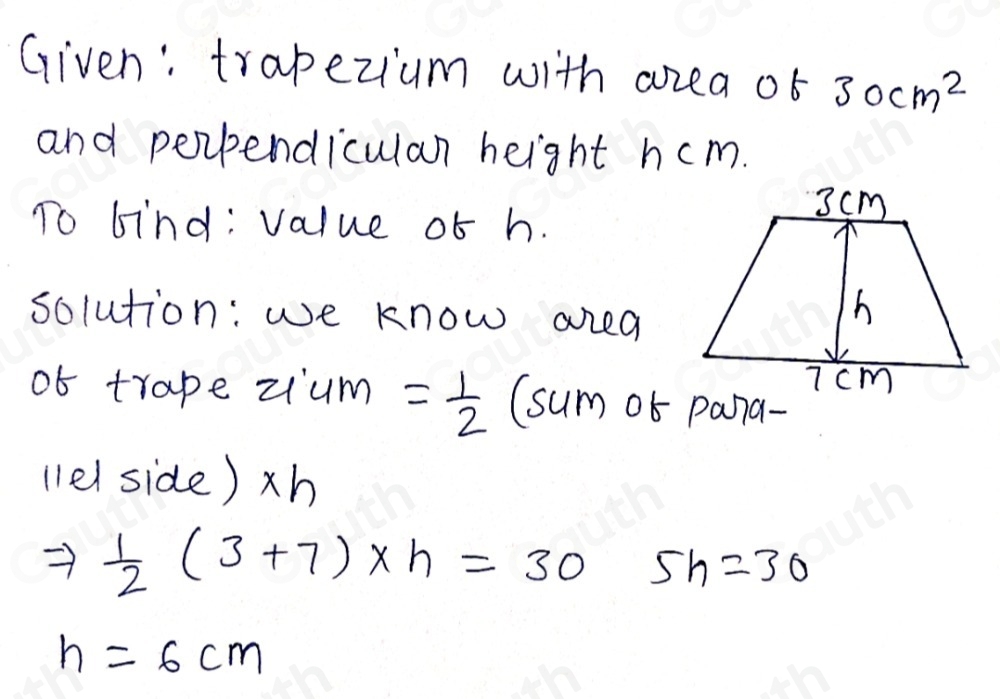 Given: trapezium with area of 30cm²
and perpendicular height h cm.
To find: value of h.
3cm
h
7cm
solution: we know area
of trapezium = 1/2 (sum of para-
llel side) ×h
⇒ 1/2 (3+7) × h = 30 5h=30
h = 6 cm
Gauth